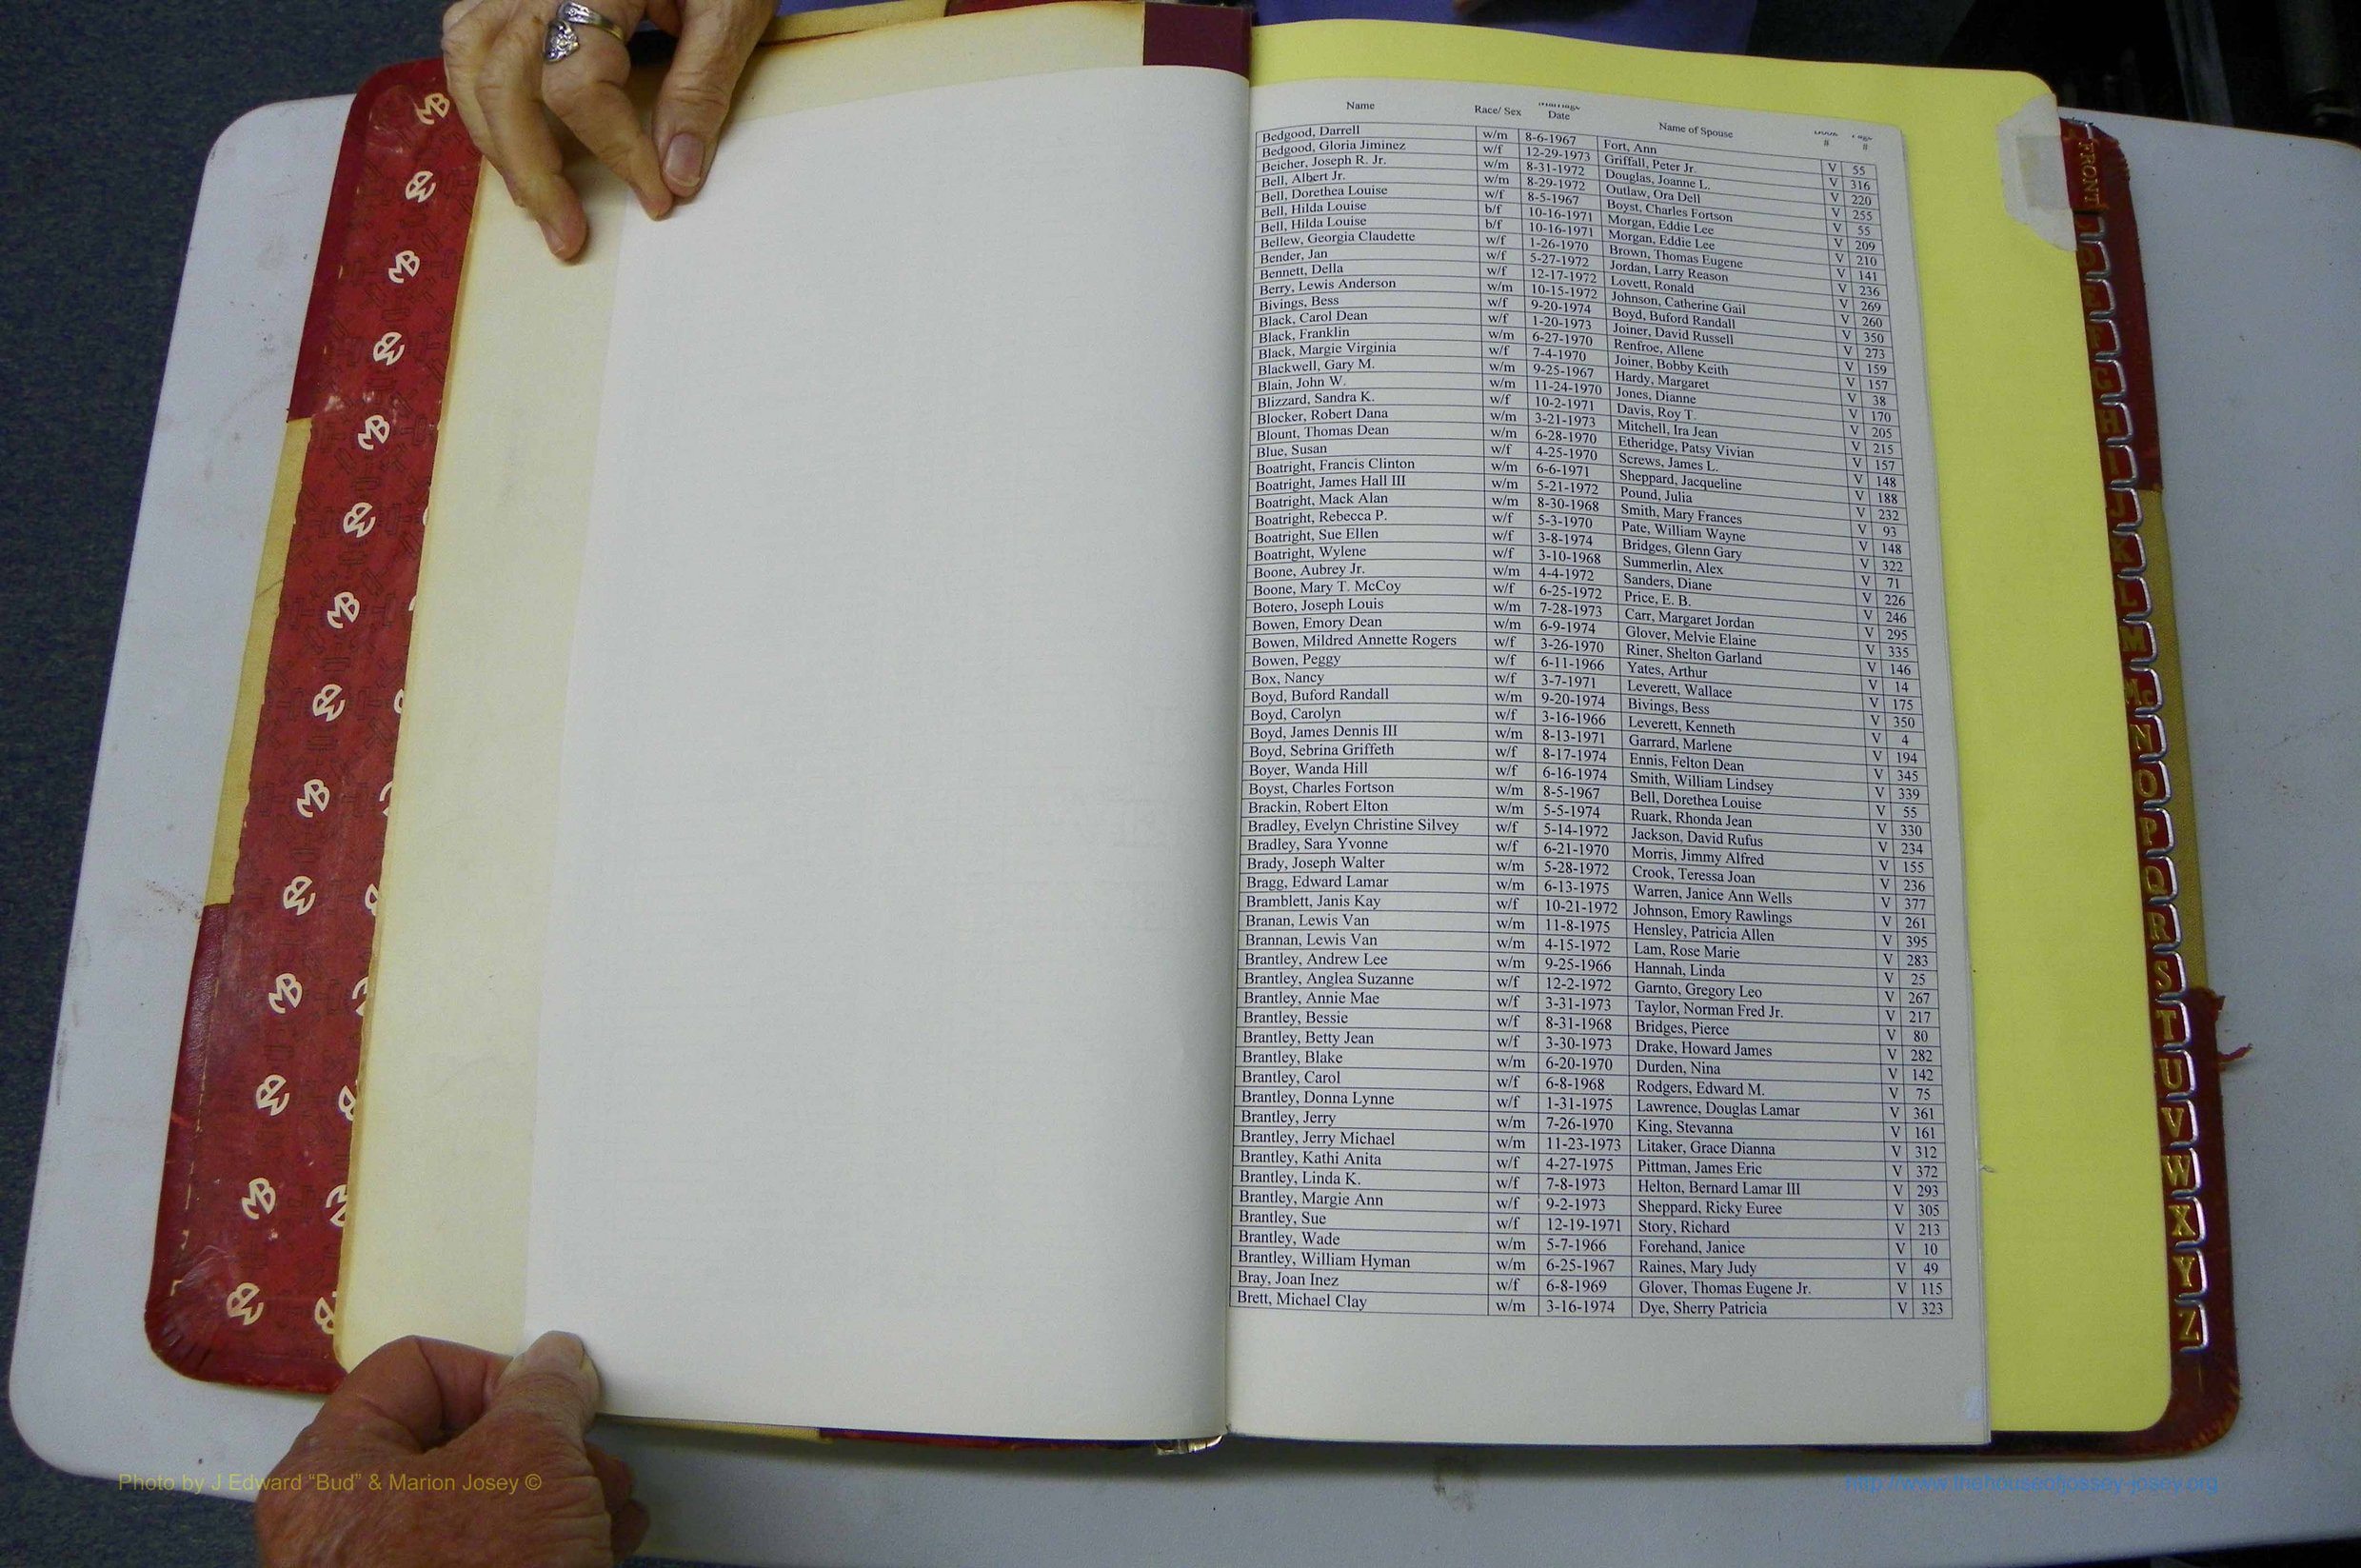 Name Race/ Sex Marriage Date Name of Spouse Book # Page #
Bedgood, Darrell w/m 8-6-1967 Fort, Ann V 55
Bedgood, Gloria Jiminez w/f 12-29-1973 Griffall, Peter Jr. V 316
Beicher, Joseph R. Jr. w/m 8-31-1972 Douglas, Joanne L. V 220
Bell, Albert Jr. w/m 8-29-1972 Outlaw, Ora Dell V 255
Bell, Dorethea Louise w/f 8-5-1967 Boyst, Charles Fortson V 55
Bell, Hilda Louise b/f 10-16-1971 Morgan, Eddie Lee V 209
Bell, Hilda Louise b/f 10-16-1971 Morgan, Eddie Lee V 210
Bellew, Georgia Claudette w/f 1-26-1970 Brown, Thomas Eugene V 141
Bender, Jan w/f 5-27-1972 Jordan, Larry Reason V 236
Bennett, Della w/f 12-17-1972 Lovett, Ronald V 269
Berry, Lewis Anderson w/m 10-15-1972 Johnson, Catherine Gail V 260
Bivings, Bess w/f 9-20-1974 Boyd, Buford Randall V 350
Black, Carol Dean w/f 1-20-1973 Joiner, David Russell V 273
Black, Franklin w/m 6-27-1970 Renfroe, Allene V 159
Black, Margie Virginia w/f 7-4-1970 Joiner, Bobby Keith V 157
Blackwell, Gary M. w/m 9-25-1967 Hardy, Margaret V 38
Blain, John W. w/m 11-24-1970 Jones, Dianne V 170
Blizzard, Sandra K. w/f 10-2-1971 Davis, Roy T. V 205
Blocker, Robert Dana w/m 3-21-1973 Mitchell, Ira Jean V 215
Blount, Thomas Dean w/m 6-28-1970 Etheridge, Patsy Vivian V 157
Blue, Susan w/f 4-25-1970 Screws, James L. V 148
Boatright, Francis Clinton w/m 6-6-1971 Sheppard, Jacqueline V 188
Boatright, James Hall III w/m 5-21-1972 Pound, Julia V 232
Boatright, Mack Alan w/m 8-30-1968 Smith, Mary Frances V 93
Boatright, Rebecca P. w/f 5-3-1970 Pate, William Wayne V 148
Boatright, Sue Ellen w/f 3-8-1974 Bridges, Glenn Gary V 322
Boatright, Wylene w/f 3-10-1968 Summerlin, Alex V 71
Boone, Aubrey Jr. w/m 4-4-1972 Sanders, Diane V 226
Boone, Mary T. McCoy w/f 6-25-1972 Price, E. B. V 246
Botero, Joseph Louis w/m 7-28-1973 Carr, Margaret Jordan V 295
Bowen, Emory Dean w/m 6-9-1974 Glover, Melvie Elaine V 335
Bowen, Mildred Annette Rogers w/f 3-26-1970 Riner, Shelton Garland V 146
Bowen, Peggy w/f 6-11-1966 Yates, Arthur V 14
Box, Nancy w/f 3-7-1971 Leverett, Wallace V 175
Boyd, Buford Randall w/m 9-20-1974 Bivings, Bess V 350
Boyd, Carolyn w/f 3-16-1966 Leverett, Kenneth V 4
Boyd, James Dennis III w/m 8-13-1971 Garrard, Marlene V 194
Boyd, Sebrina Griffeth w/f 8-17-1974 Ennis, Felton Dean V 345
Boyer, Wanda Hill w/f 6-16-1974 Smith, William Lindsey V 339
Boyst, Charles Fortson w/m 8-5-1967 Bell, Dorethea Louise V 55
Brackin, Robert Elton w/m 5-5-1974 Ruark, Rhonda Jean V 330
Bradley, Evelyn Christine Silvey w/f 5-14-1972 Jackson, David Rufus V 234
Bradley, Sara Yvonne w/f 6-21-1970 Morris, Jimmy Alfred V 155
Brady, Joseph Walter w/m 5-28-1972 Crook, Teressa Joan V 236
Bragg, Edward Lamar w/m 6-13-1975 Warren, Janice Ann Wells V 377
Bramblett, Janis Kay w/f 10-21-1972 Johnson, Emory Rawlings V 261
Branan, Lewis Van w/m 11-8-1975 Hensley, Patricia Allen V 395
Brannan, Lewis Van w/m 4-15-1972 Lam, Rose Marie V 283
Brantley, Andrew Lee w/m 9-25-1966 Hannah, Linda V 25
Brantley, Anglea Suzanne w/f 12-2-1972 Garnto, Gregory Leo V 267
Brantley, Annie Mae w/f 3-31-1973 Taylor, Norman Fred Jr. V 217
Brantley, Bessie w/f 8-31-1968 Bridges, Pierce V 80
Brantley, Betty Jean w/f 3-30-1973 Drake, Howard James V 282
Brantley, Blake w/m 6-20-1970 Durden, Nina V 142
Brantley, Carol w/f 6-8-1968 Rodgers, Edward M. V 75
Brantley, Donna Lynne w/f 1-31-1975 Lawrence, Douglas Lamar V 361
Brantley, Jerry w/m 7-26-1970 King, Stevanna V 161
Brantley, Jerry Michael w/m 11-23-1973 Litaker, Grace Dianna V 312
Brantley, Kathi Anita w/f 4-27-1975 Pittman, James Eric V 372
Brantley, Linda K. w/f 7-8-1973 Helton, Bernard Lamar III V 293
Brantley, Margie Ann w/f 9-2-1973 Sheppard, Ricky Euree V 305
Brantley, Sue w/f 12-19-1971 Story, Richard V 213
Brantley, Wade w/m 5-7-1966 Forehand, Janice V 10
Brantley, William Hyman w/m 6-25-1967 Raines, Mary Judy V 49
Bray, Joan Inez w/f 6-8-1969 Glover, Thomas Eugene Jr. V 115
Brett, Michael Clay w/m 3-16-1974 Dye, Sherry Patricia V 323
FRONT
G
H
I
J
K
L
M
Mc
N
O
P
Q
R
S
T
U
V
W
X
Y
Z
Photo by J Edward “Bud” & Marion Josey ©
http://www.thehouseofjossey-josey.org